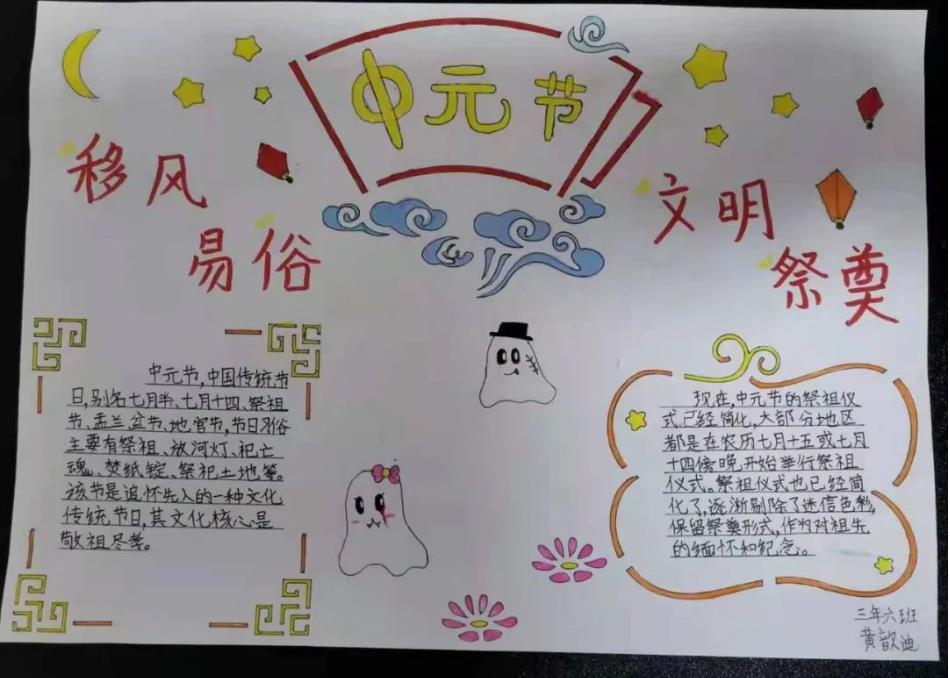 中元节
移风
易俗
文明
祭奠
中元节,中国传统节
日,别名七月半、七月十四、祭祖
节、盂兰盆节、地官节,节日习俗
主要有祭祖、放河灯、祀亡
魂、焚纸锭、祭祀土地等。
该节是追怀先人的一种文化
传统节日,其文化核心是
敬祖尽孝。
现在,中元节的祭祖仪
式已经简化,大部分地区
都是在农历七月十五或七月
十四傍晚开始举行祭祖
仪式。祭祖仪式也已经简
化了,逐渐剔除了迷信色彩,
保留祭奠形式,作为对祖先
的缅怀和纪念。
三年六班
黄歆迪